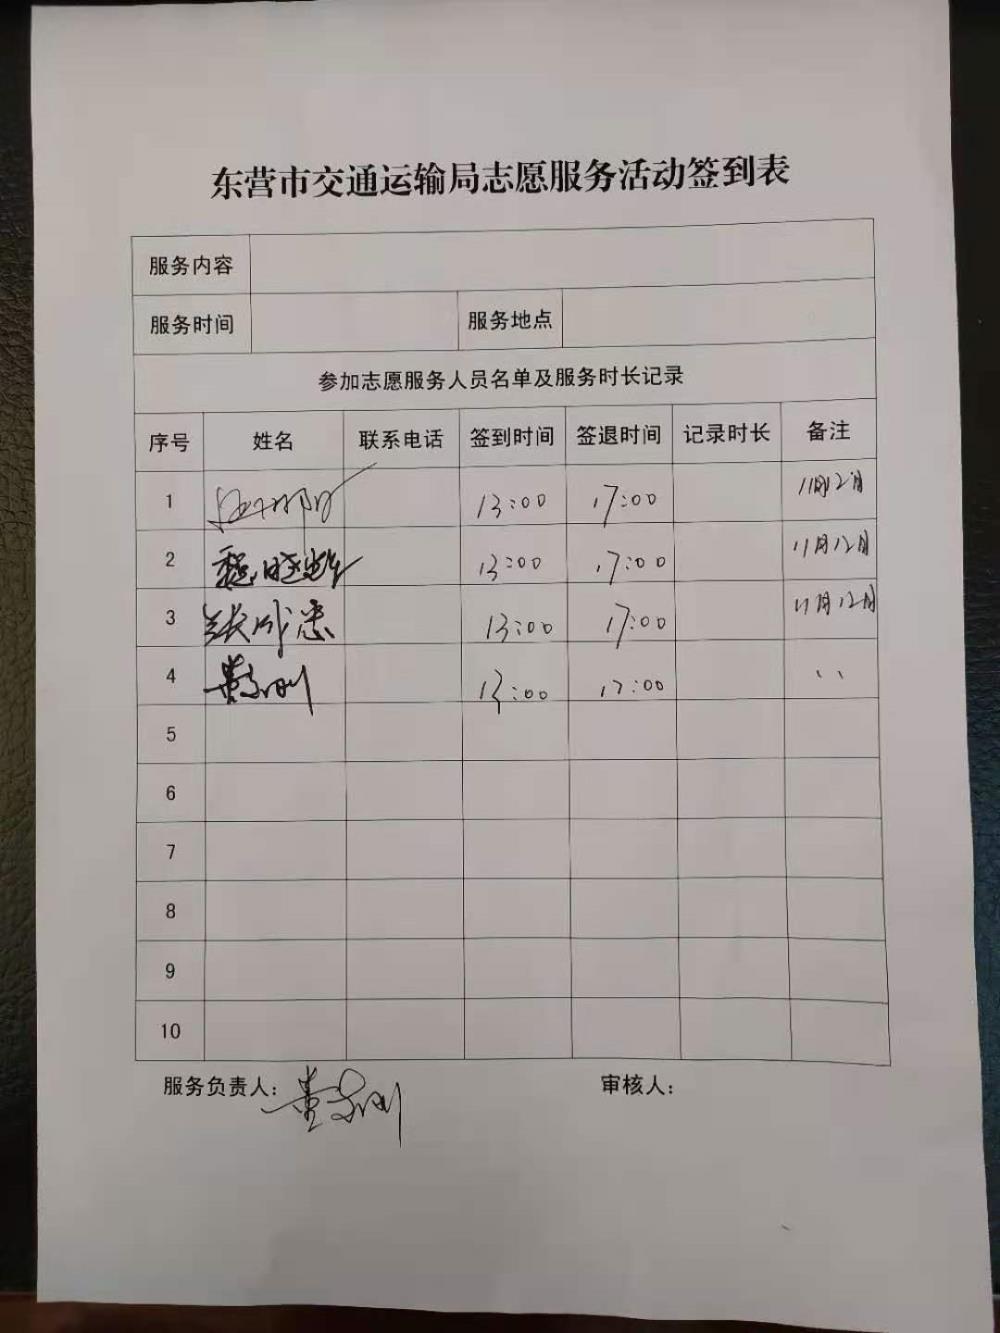 东营市交通运输局志愿服务活动签到表
服务内容
服务时间 服务地点
参加志愿服务人员名单及服务时长记录
序号 姓名 联系电话 签到时间 签退时间 记录时长 备注
1 13:00 17:00 11月12月
2 13:00 17:00 11月12月
3 张成忠 13:00 17:00 11月12月
4 13:00 17:00 、、
5
6
7
8
9
10
服务负责人: 审核人: